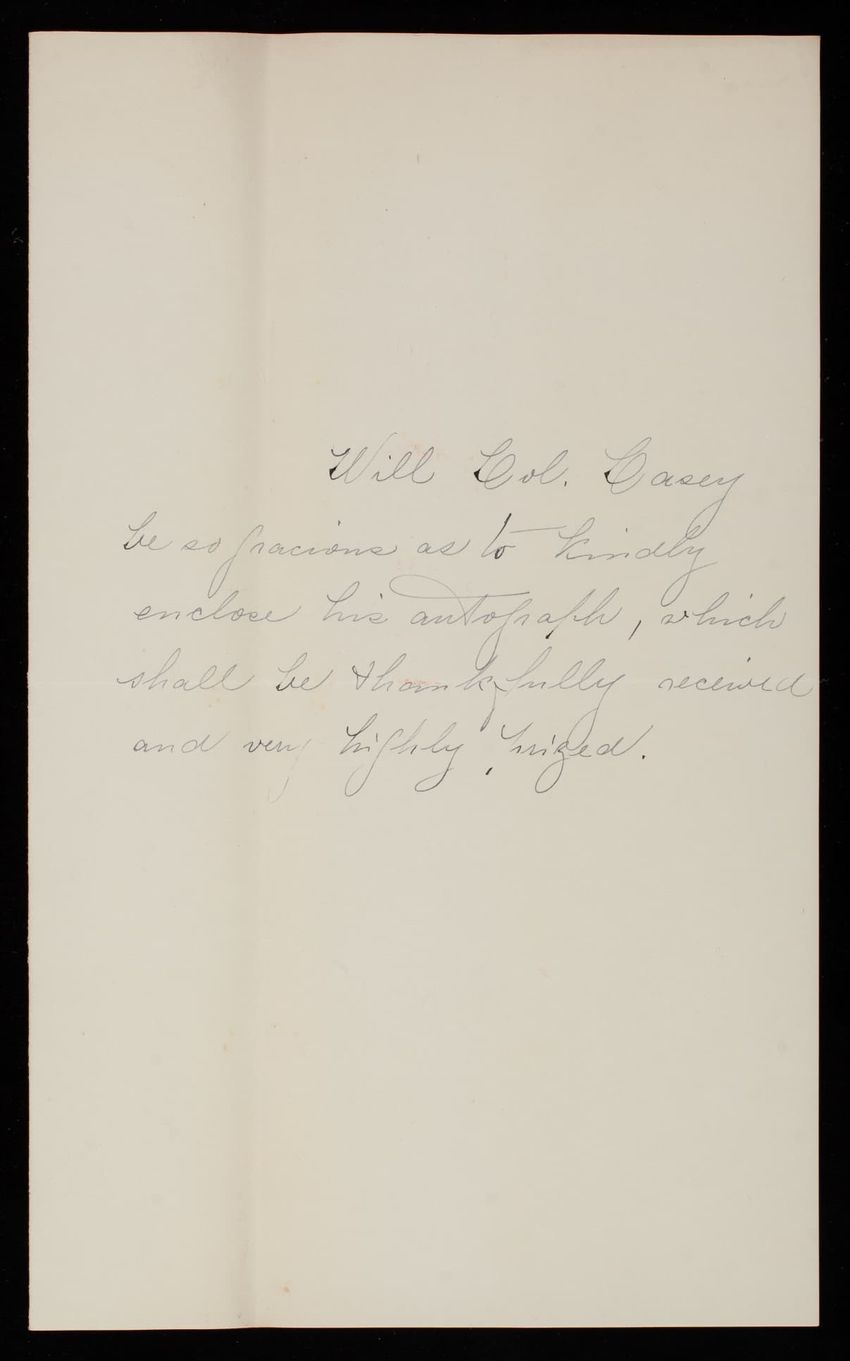 Will Col. Casey
be so gracious as to kindly
enclose his autograph, which
shall be thankfully received
and very highly prized.